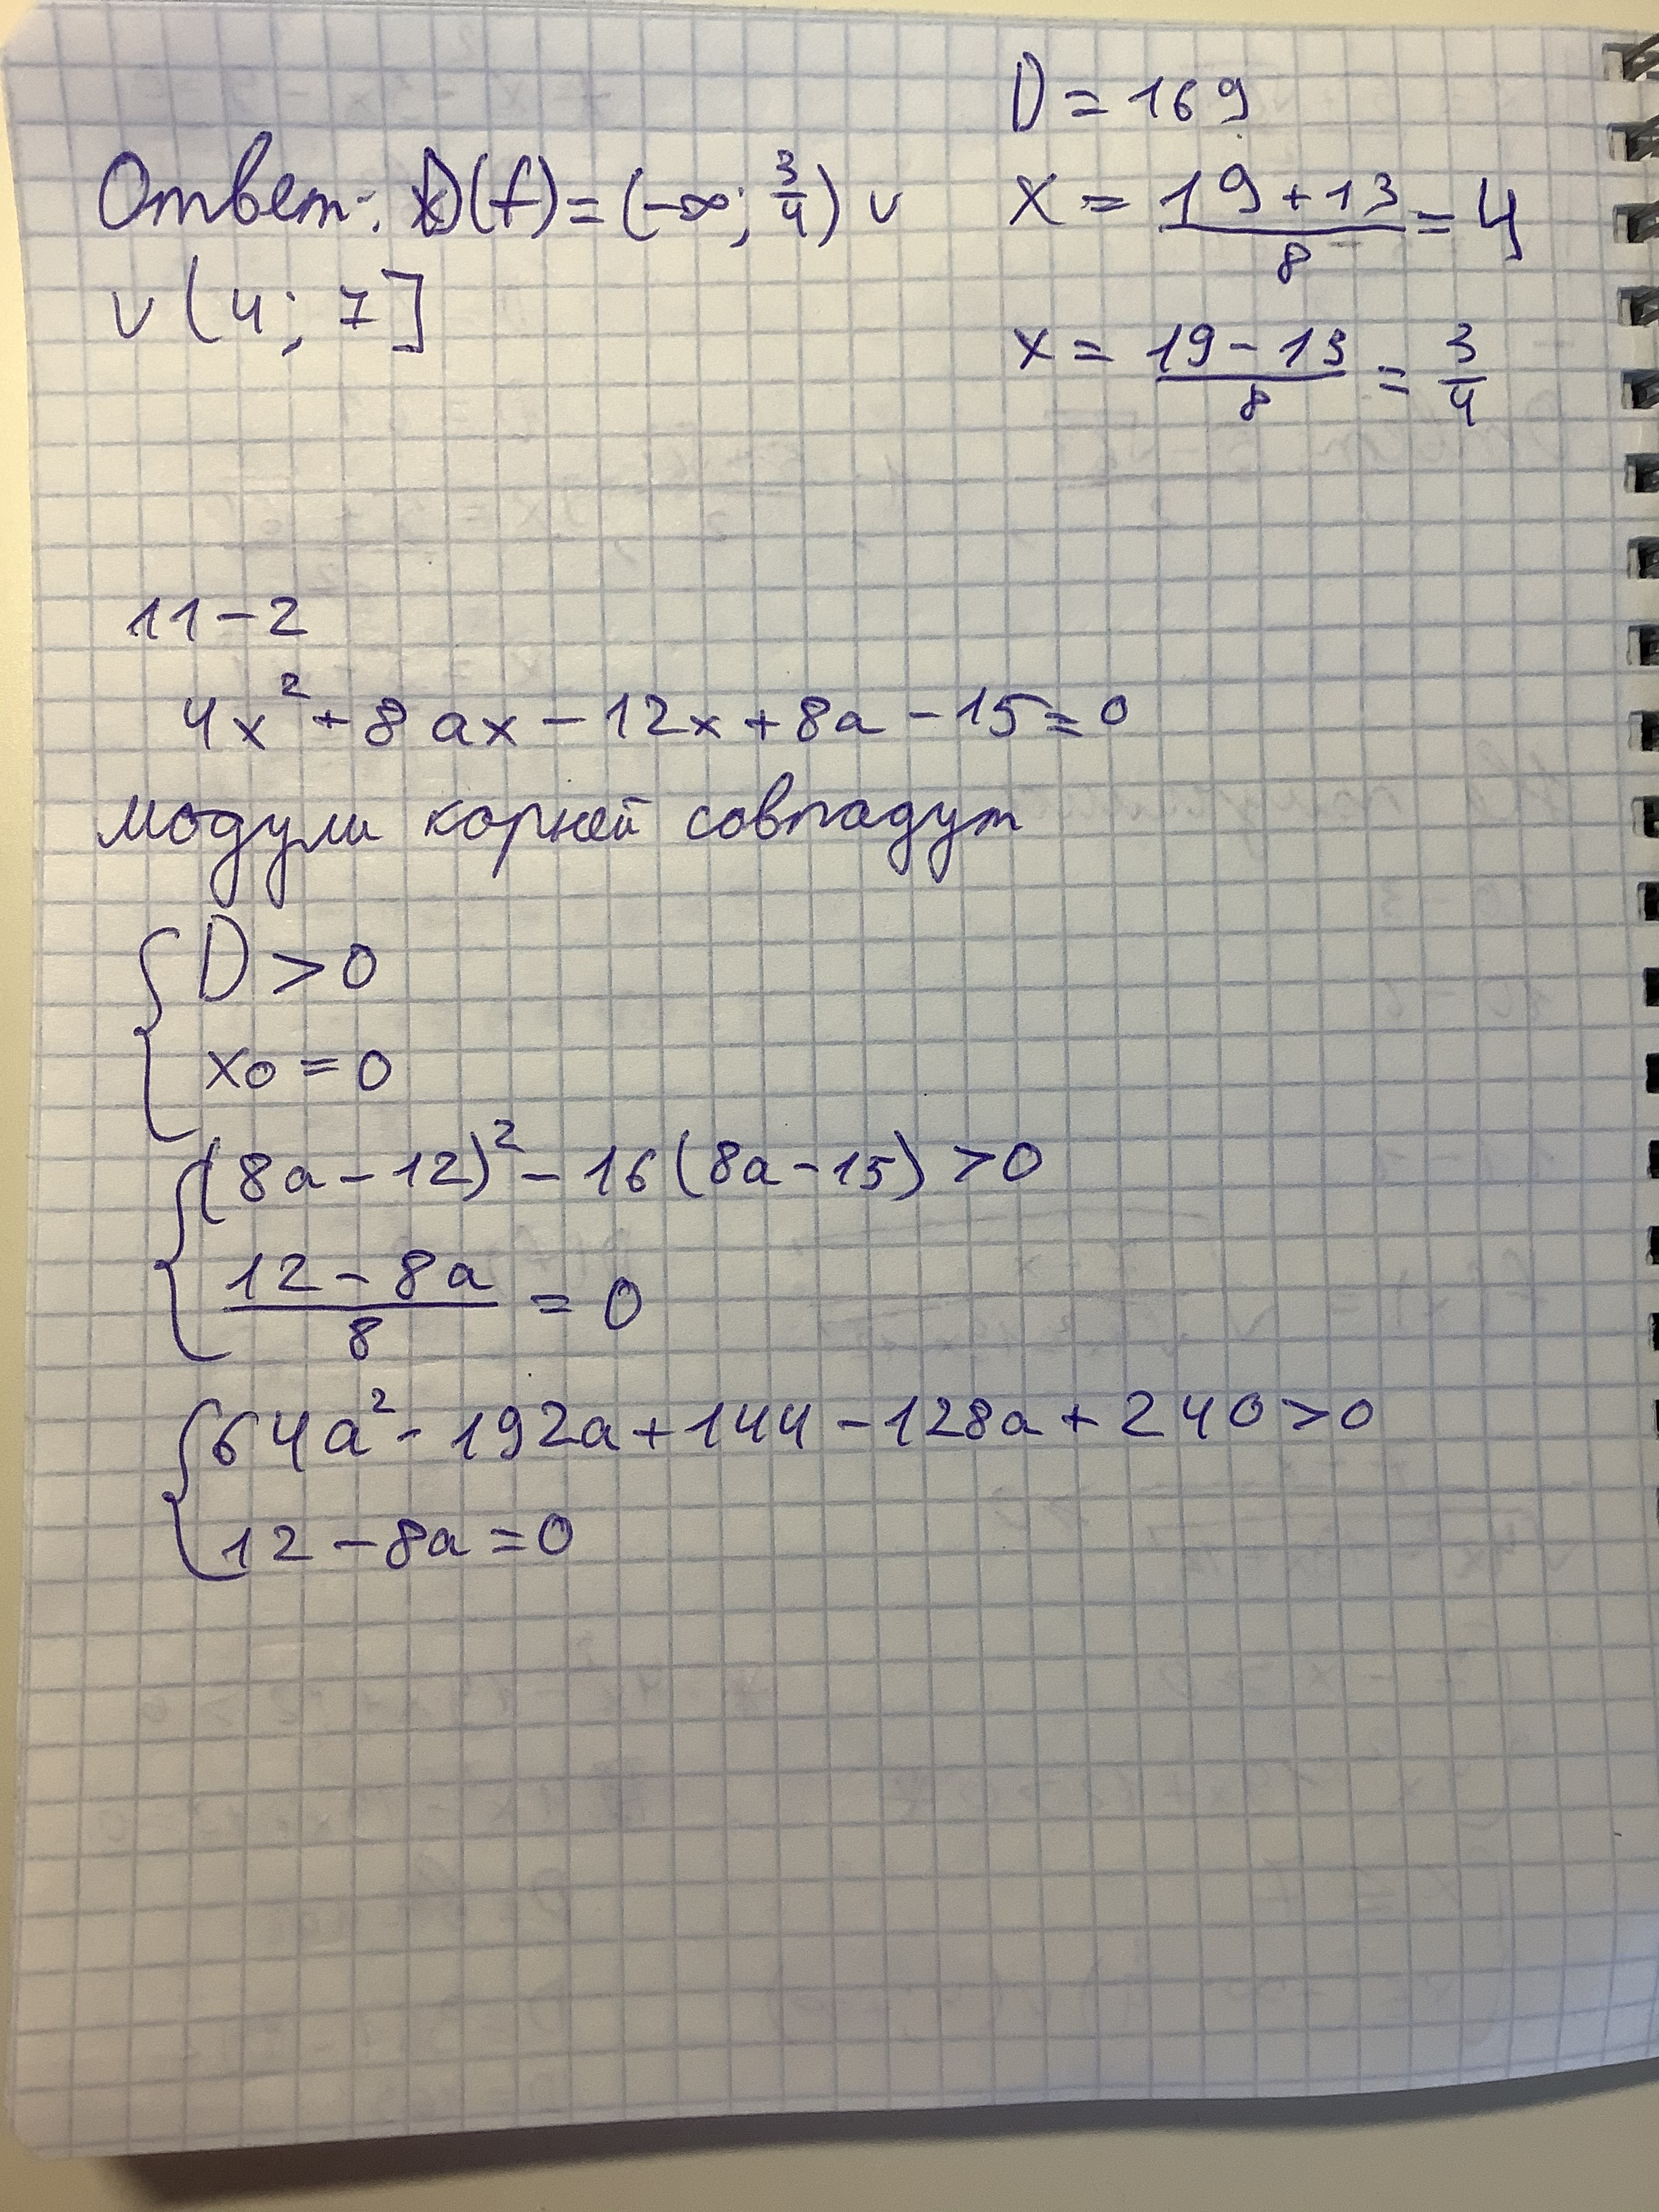 D = 169
Ответ: D(f) = (-∞; 3/4) ∪
∪ (4; 7]
x = (19 + 13)/8 = 4
x = (19 - 13)/8 = 3/4
11 - 2
4x² + 8ax - 12x + 8a - 15 = 0
модули корней совпадут
{ D > 0
x₀ = 0
{ (8a - 12)² - 16(8a - 15) > 0
(12 - 8a)/8 = 0
{ 64a² - 192a + 144 - 128a + 240 > 0
12 - 8a = 0